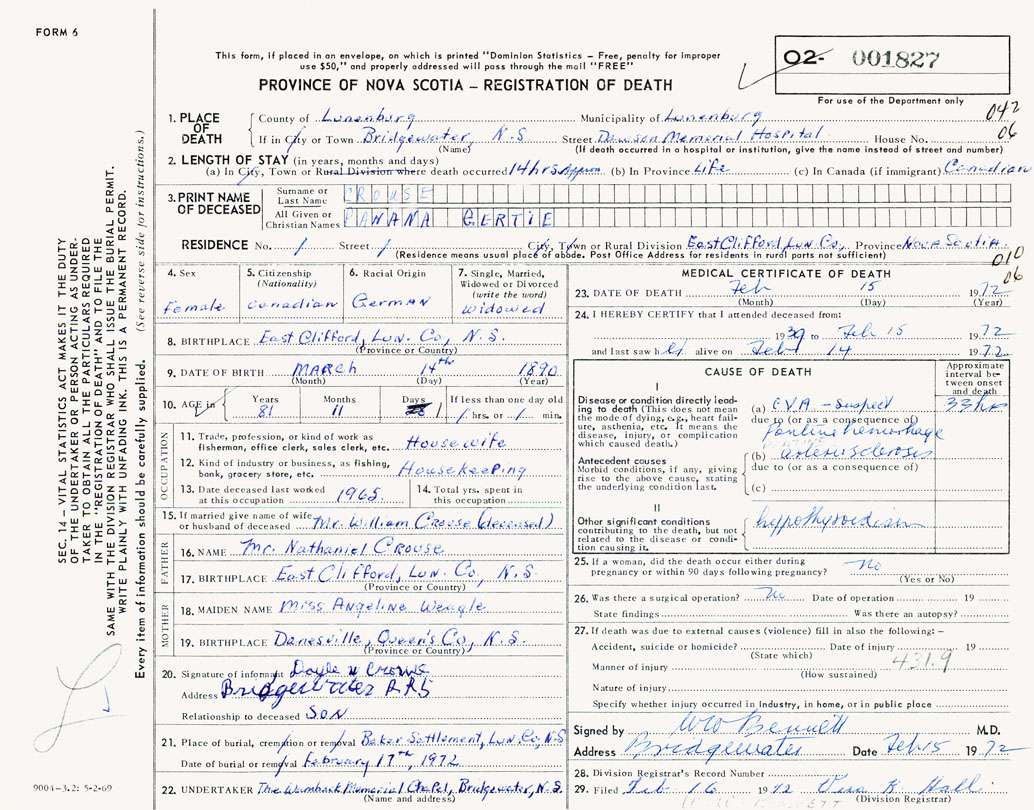 FORM 6
This form, if placed in an envelope, on which is printed "Dominion Statistics – Free, penalty for improper
use $50," and properly addressed will pass through the mail "FREE"
PROVINCE OF NOVA SCOTIA – REGISTRATION OF DEATH
O2- 001827
For use of the Department only
042
06
1. PLACE OF DEATH
County of Lunenburg Municipality of Lunenburg
If in City or Town Bridgewater, N.S Street Dawson Memorial Hospital House No.
(Name) (If death occurred in a hospital or institution, give the name instead of street and number)
2. LENGTH OF STAY (in years, months and days)
(a) In City, Town or Rural Division where death occurred 14 hrs Approx (b) In Province Life (c) In Canada (if immigrant) Canadian
3. PRINT NAME OF DECEASED
Surname or Last Name CROUSE
All Given or Christian Names PANANA GERTIE
RESIDENCE No. / Street / City, Town or Rural Division East Clifford Lun. Co., Province Nova Scotia.
(Residence means usual place of abode. Post Office Address for residents in rural parts not sufficient)
010
06
4. Sex Female
5. Citizenship (Nationality) Canadian
6. Racial Origin German
7. Single, Married, Widowed or Divorced (write the word) Widowed
8. BIRTHPLACE East Clifford, Lun. Co, N.S.
(Province or Country)
9. DATE OF BIRTH MARCH 14th 1890
(Month) (Day) (Year)
10. AGE in Years 81 Months 11 Days If less than one day old / hrs. or / min.
OCCUPATION
11. Trade, profession, or kind of work as fisherman, office clerk, sales clerk, etc. Housewife
12. Kind of industry or business, as fishing, bank, grocery store, etc. Housekeeping
13. Date deceased last worked at this occupation 1965.
14. Total yrs. spent in this occupation
15. If married give name of wife or husband of deceased Mr. William Crouse (deceased)
FATHER
16. NAME Mr. Nathaniel Crouse
17. BIRTHPLACE East Clifford, Lun. Co, N.S.
(Province or Country)
MOTHER
18. MAIDEN NAME Miss Angeline Weagle
19. BIRTHPLACE Danesville, Queen's Co, N.S.
(Province or Country)
20. Signature of informant Doyle Crouse
Address Bridgewater RR5
Relationship to deceased SON
21. Place of burial, cremation or removal Baker Settlement, Lun. Co, N.S
Date of burial or removal February 17th, 1972
22. UNDERTAKER The Wamback Memorial Chapel, Bridgewater, N.S.
(Name and address)
MEDICAL CERTIFICATE OF DEATH
23. DATE OF DEATH Feb 15 1972
(Month) (Day) (Year)
24. I HEREBY CERTIFY that I attended deceased from:
1939 to Feb 15 1972
and last saw her alive on Feb 14 1972
CAUSE OF DEATH
Approximate interval between onset and death
I
Disease or condition directly leading to death (This does not mean the mode of dying, e.g., heart failure, asthenia, etc. It means the disease, injury, or complication which caused death.)
(a) C.V.A – suspect 33 hrs
due to (or as a consequence of)
Pontine hemorrhage
Antecedent causes
Morbid conditions, if any, giving rise to the above cause, stating the underlying condition last.
(b) arteriosclerosis
due to (or as a consequence of)
(c)
II
Other significant conditions contributing to the death, but not related to the disease or condition causing it.
hypothyroidism
25. If a woman, did the death occur either during pregnancy or within 90 days following pregnancy? No
(Yes or No)
26. Was there a surgical operation? No Date of operation 19
State findings Was there an autopsy?
27. If death was due to external causes (violence) fill in also the following: –
Accident, suicide or homicide? Date of injury 19
(State which)
431.9
Manner of injury
(How sustained)
Nature of injury
Specify whether injury occurred in Industry, in home, or in public place
Signed by W O Bennett M.D.
Address Bridgewater Date Feb 15 1972
28. Division Registrar's Record Number
29. Filed Feb 16 1972 Hall
(Division Registrar)
W. W. BENNETT
SEC. 14 – VITAL STATISTICS ACT MAKES IT THE DUTY
OF THE UNDERTAKER OR PERSON ACTING AS UNDER-
TAKER TO OBTAIN ALL THE PARTICULARS REQUIRED
IN THE "REGISTRATION OF DEATH" AND TO FILE THE
SAME WITH THE DIVISION REGISTRAR WHO SHALL ISSUE THE BURIAL PERMIT.
WRITE PLAINLY WITH UNFADING INK. THIS IS A PERMANENT RECORD.
Every item of information should be carefully supplied. (See reverse side for instructions.)
9004–3.2: 5-2-69